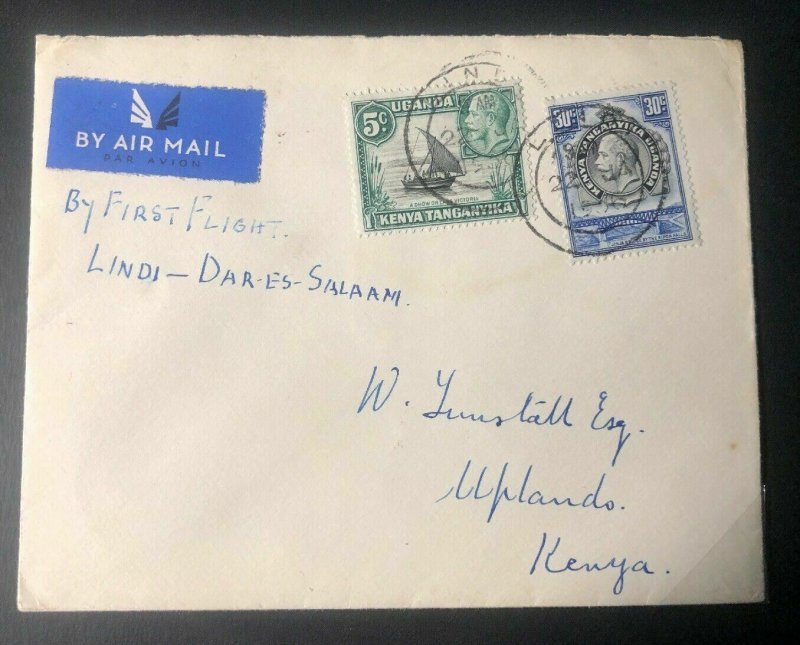 BY AIR MAIL
PAR AVION
By FIRST FLIGHT.
LINDI - DAR-ES-SALAAM.
5c UGANDA
A DHOW ON VICTORIA
KENYA TANGANYIKA
30c 30c
KENYA TANGANYIKA UGANDA
W. Tunstall Esq.
Uplands.
Kenya.